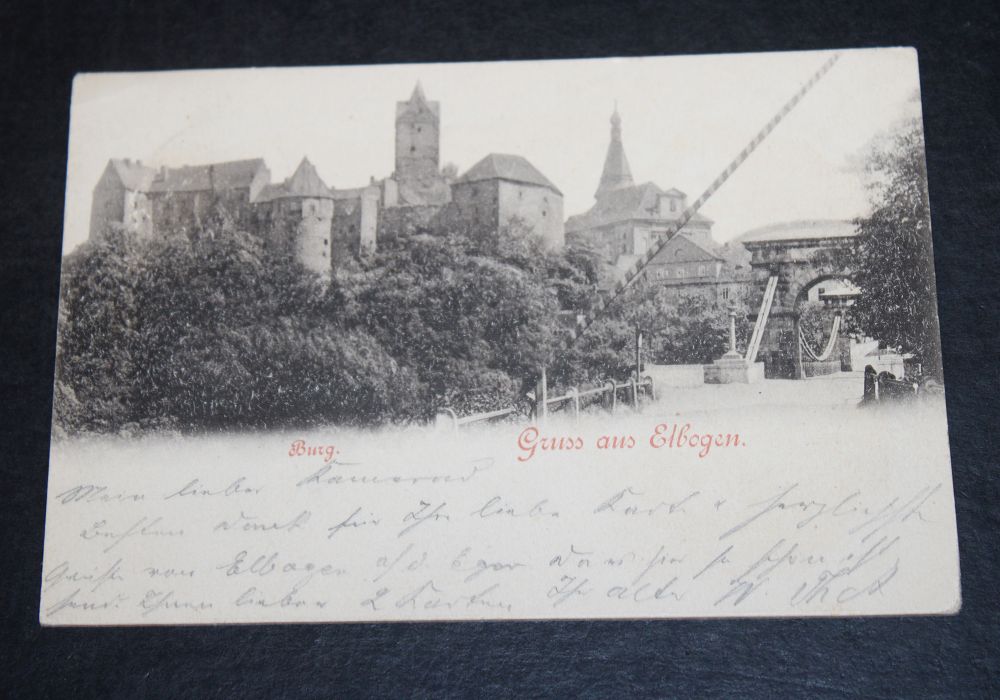 Burg.
Gruss aus Elbogen.
Mein lieber Kamerad
Besten Dank für Ihre liebe Karte & herzlichste
Grüsse von Elbogen a/d. Eger Da es hier so schön ist
send. Ihnen lieber 2 Karten Ihr alter W.